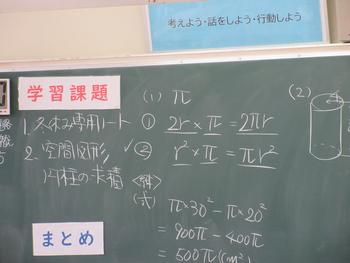 考えよう・話をしよう・行動しよう
学習課題
1. 冬休み専用ノート
2. 空間図形
円柱の求積
まとめ
(1) π
① 2r×π = 2πr
✓② r²×π = πr²
(式) π×30²-π×20²
= 900π-400π
= 500π(cm²)
(2)
4